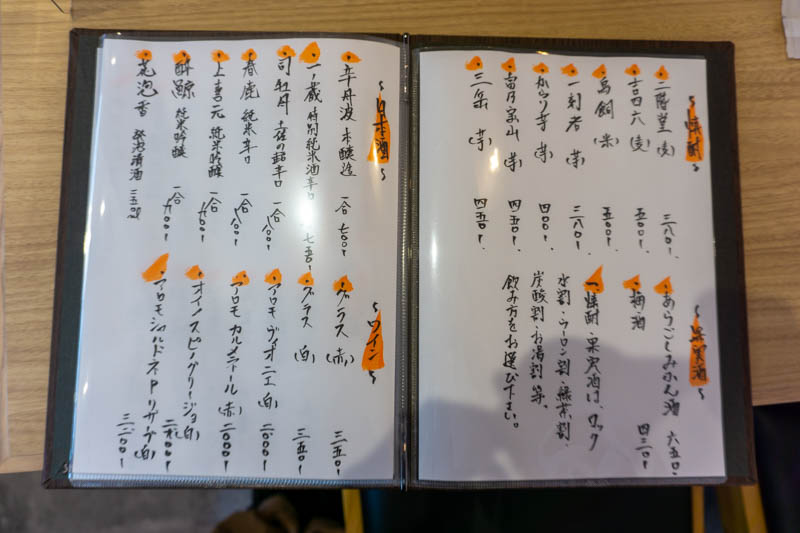 〜焼酎〜
・二階堂(麦) 三八〇！
・吉四六(麦) 五〇〇！
・鳥飼(米) 五〇〇！
・一刻者(芋) 三八〇！
・からり芋(芋) 四〇〇！
・富乃宝山(芋) 四五〇！
・三岳(芋) 四五〇！
〜果実酒〜
・あらごしみかん酒 六五〇！
・梅酒 四三〇！
・焼酎・果実酒は、ロック
水割・ウーロン割・緑茶割、
炭酸割・お湯割 等、
飲み方をお選び下さい。
〜日本酒〜
・辛丹波 本醸造 一合 七〇〇！
・一ノ蔵 特別純米酒辛口 七五〇！
・司牡丹 辛口 一合
・春鹿 純米辛口 一合
・上喜元 純米吟醸 一合
・酔鯨 純米吟醸 一合 九〇〇！
・花泡香 発泡清酒
〜ワイン〜
・グラス(赤) 三五〇！
・グラス(白) 三五〇！
・アロモ ヴィオニエ(白) 二八〇〇！
・アロモ カルメネール(赤) 二八〇〇！
・オイノス ピノ・グリージョ(白)
・アロモ シャルドネ P・リザーブ(白)